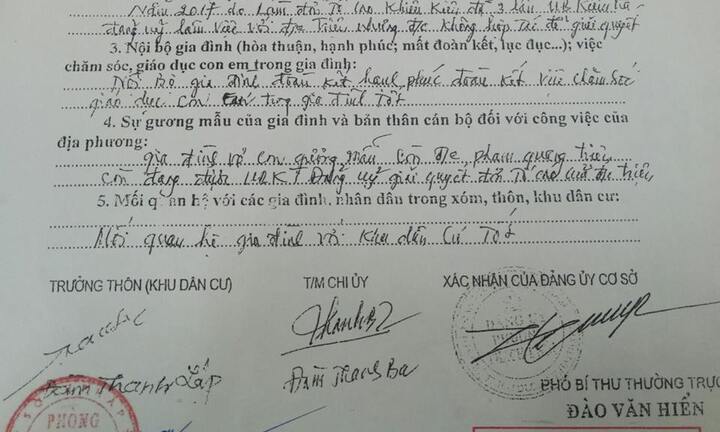 Năm 2017 do Làm đơn Tố cáo Khiếu Kiện đã 3 lần UB Kiểm tra
đảng uỷ làm việc với đ/c Triệu nhưng đ/c không hợp Tác để giải quyết
3. Nội bộ gia đình (hòa thuận, hạnh phúc; mất đoàn kết, lục đục...); việc
chăm sóc, giáo dục con em trong gia đình:
Nội Bộ gia đình đoàn kết hạnh phúc đoàn kết việc chăm sóc
giáo dục con trong gia đình Tốt
4. Sự gương mẫu của gia đình và bản thân cán bộ đối với công việc của
địa phương:
gia đình vợ con gương mẫu Còn đ/c phạm quang triệu
Còn đang được UBKT Đảng uỷ giải quyết đơn Tố cáo của đ/c triệu
5. Mối quan hệ với các gia đình, nhân dân trong xóm, thôn, khu dân cư:
Mối quan hệ gia đình với khu dân Cư Tốt
TRƯỞNG THÔN (KHU DÂN CƯ)
T/M CHI ỦY
XÁC NHẬN CỦA ĐẢNG ỦY CƠ SỞ
Đàm Thanh Lập
Đàm Thanh Ba
PHÓ BÍ THƯ THƯỜNG TRỰC
ĐÀO VĂN HIỂN
PHÒNG